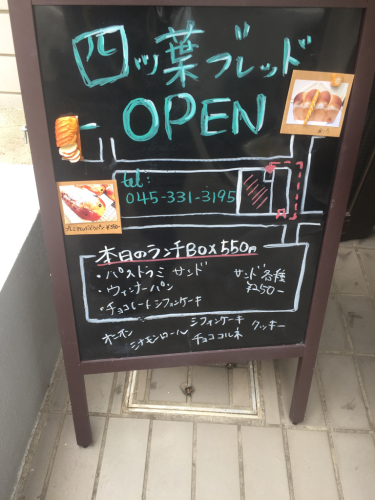 四ッ葉ブレッド
OPEN
tel:
045-331-3195
本日のランチBOX 550円
・パストラミ サンド
・ウィンナーパン
・チョコレートシフォンケーキ
サンド各種
¥250-
オニオン
シナモンロール
シフォンケーキ
チョココルネ
クッキー